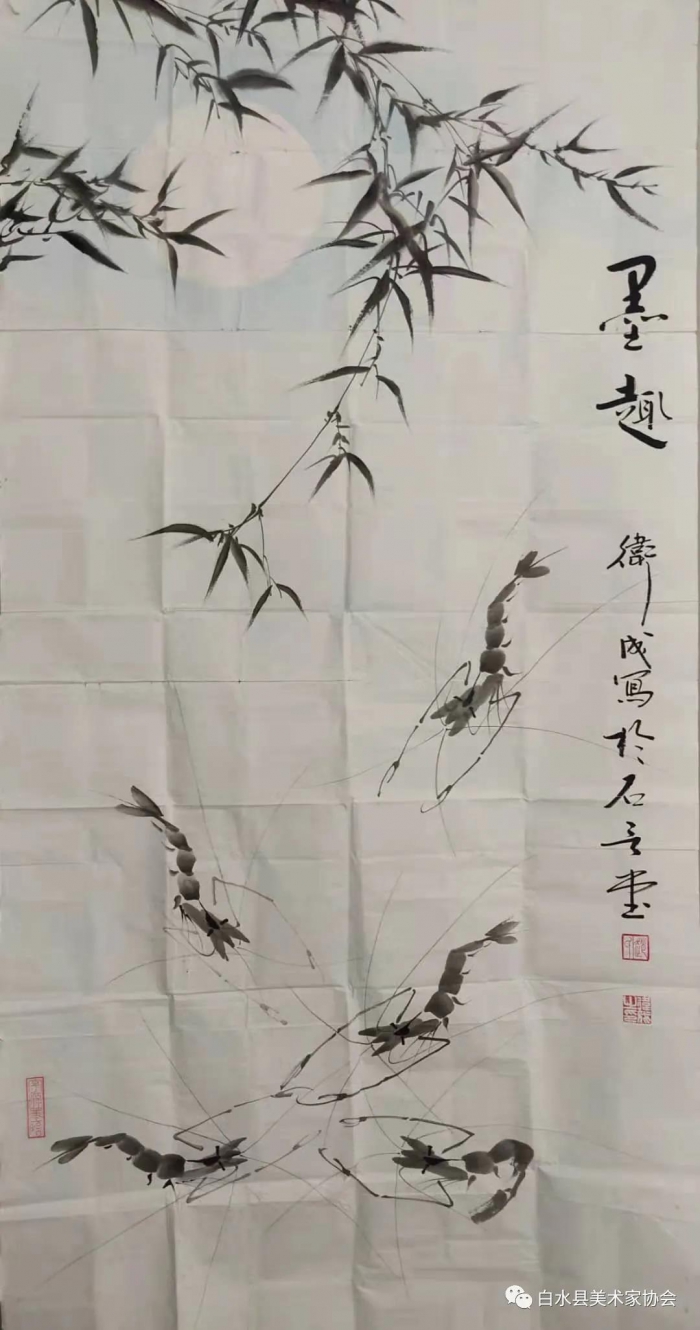 墨趣
衛成寫於石言堂
白水县美术家协会